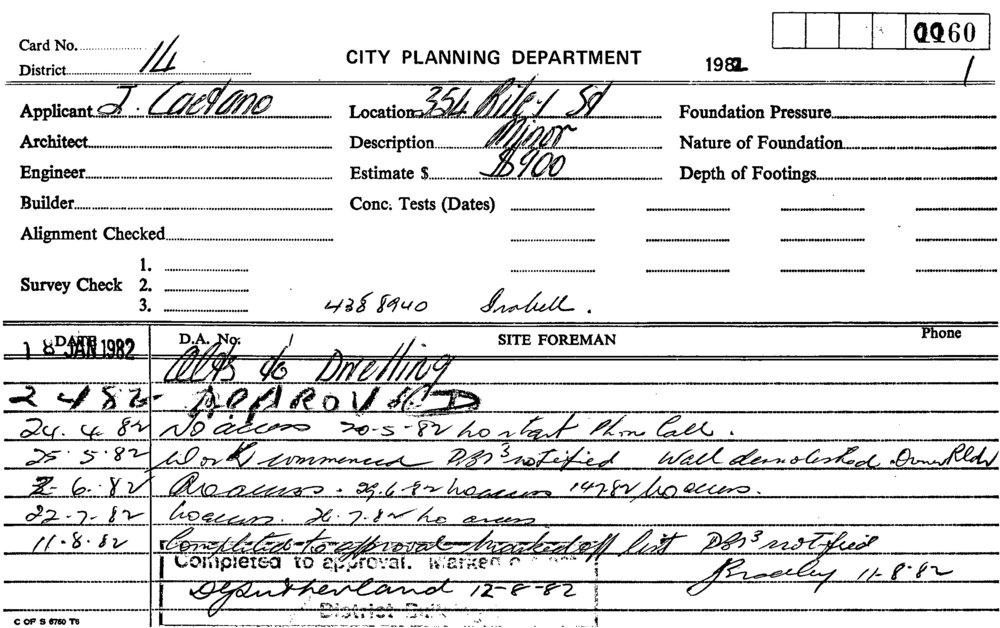 0060
Card No.
14
CITY PLANNING DEPARTMENT
1982
District
1
Applicant J. Caetano
Location 354 Riley St
Foundation Pressure
Architect
Description Minor
Nature of Foundation
Engineer
Estimate $ $900
Depth of Footings
Builder
Conc. Tests (Dates)
Alignment Checked
1.
Survey Check 2.
3.
438 8940 Isabell.
DATE D.A. No. SITE FOREMAN Phone
18 JAN 1982
Alts to Dwelling
2 4 82 APPROVED
24.4.82 No access 20-5-82 no start Phone Call.
25.5.82 Work commenced DBS3 notified Wall demolished. Owner Bldr
2-6-82 No access. 29.6.82 no access 14782 No access.
22-7-82 no access. 26.7.82 no access
11.8.82 Completed to approval marked off list DBS3 notified
Completed to approval. Marked
JBradley 11-8-82
DGSutherland 12-8-82
District
C OF S 6760 T6